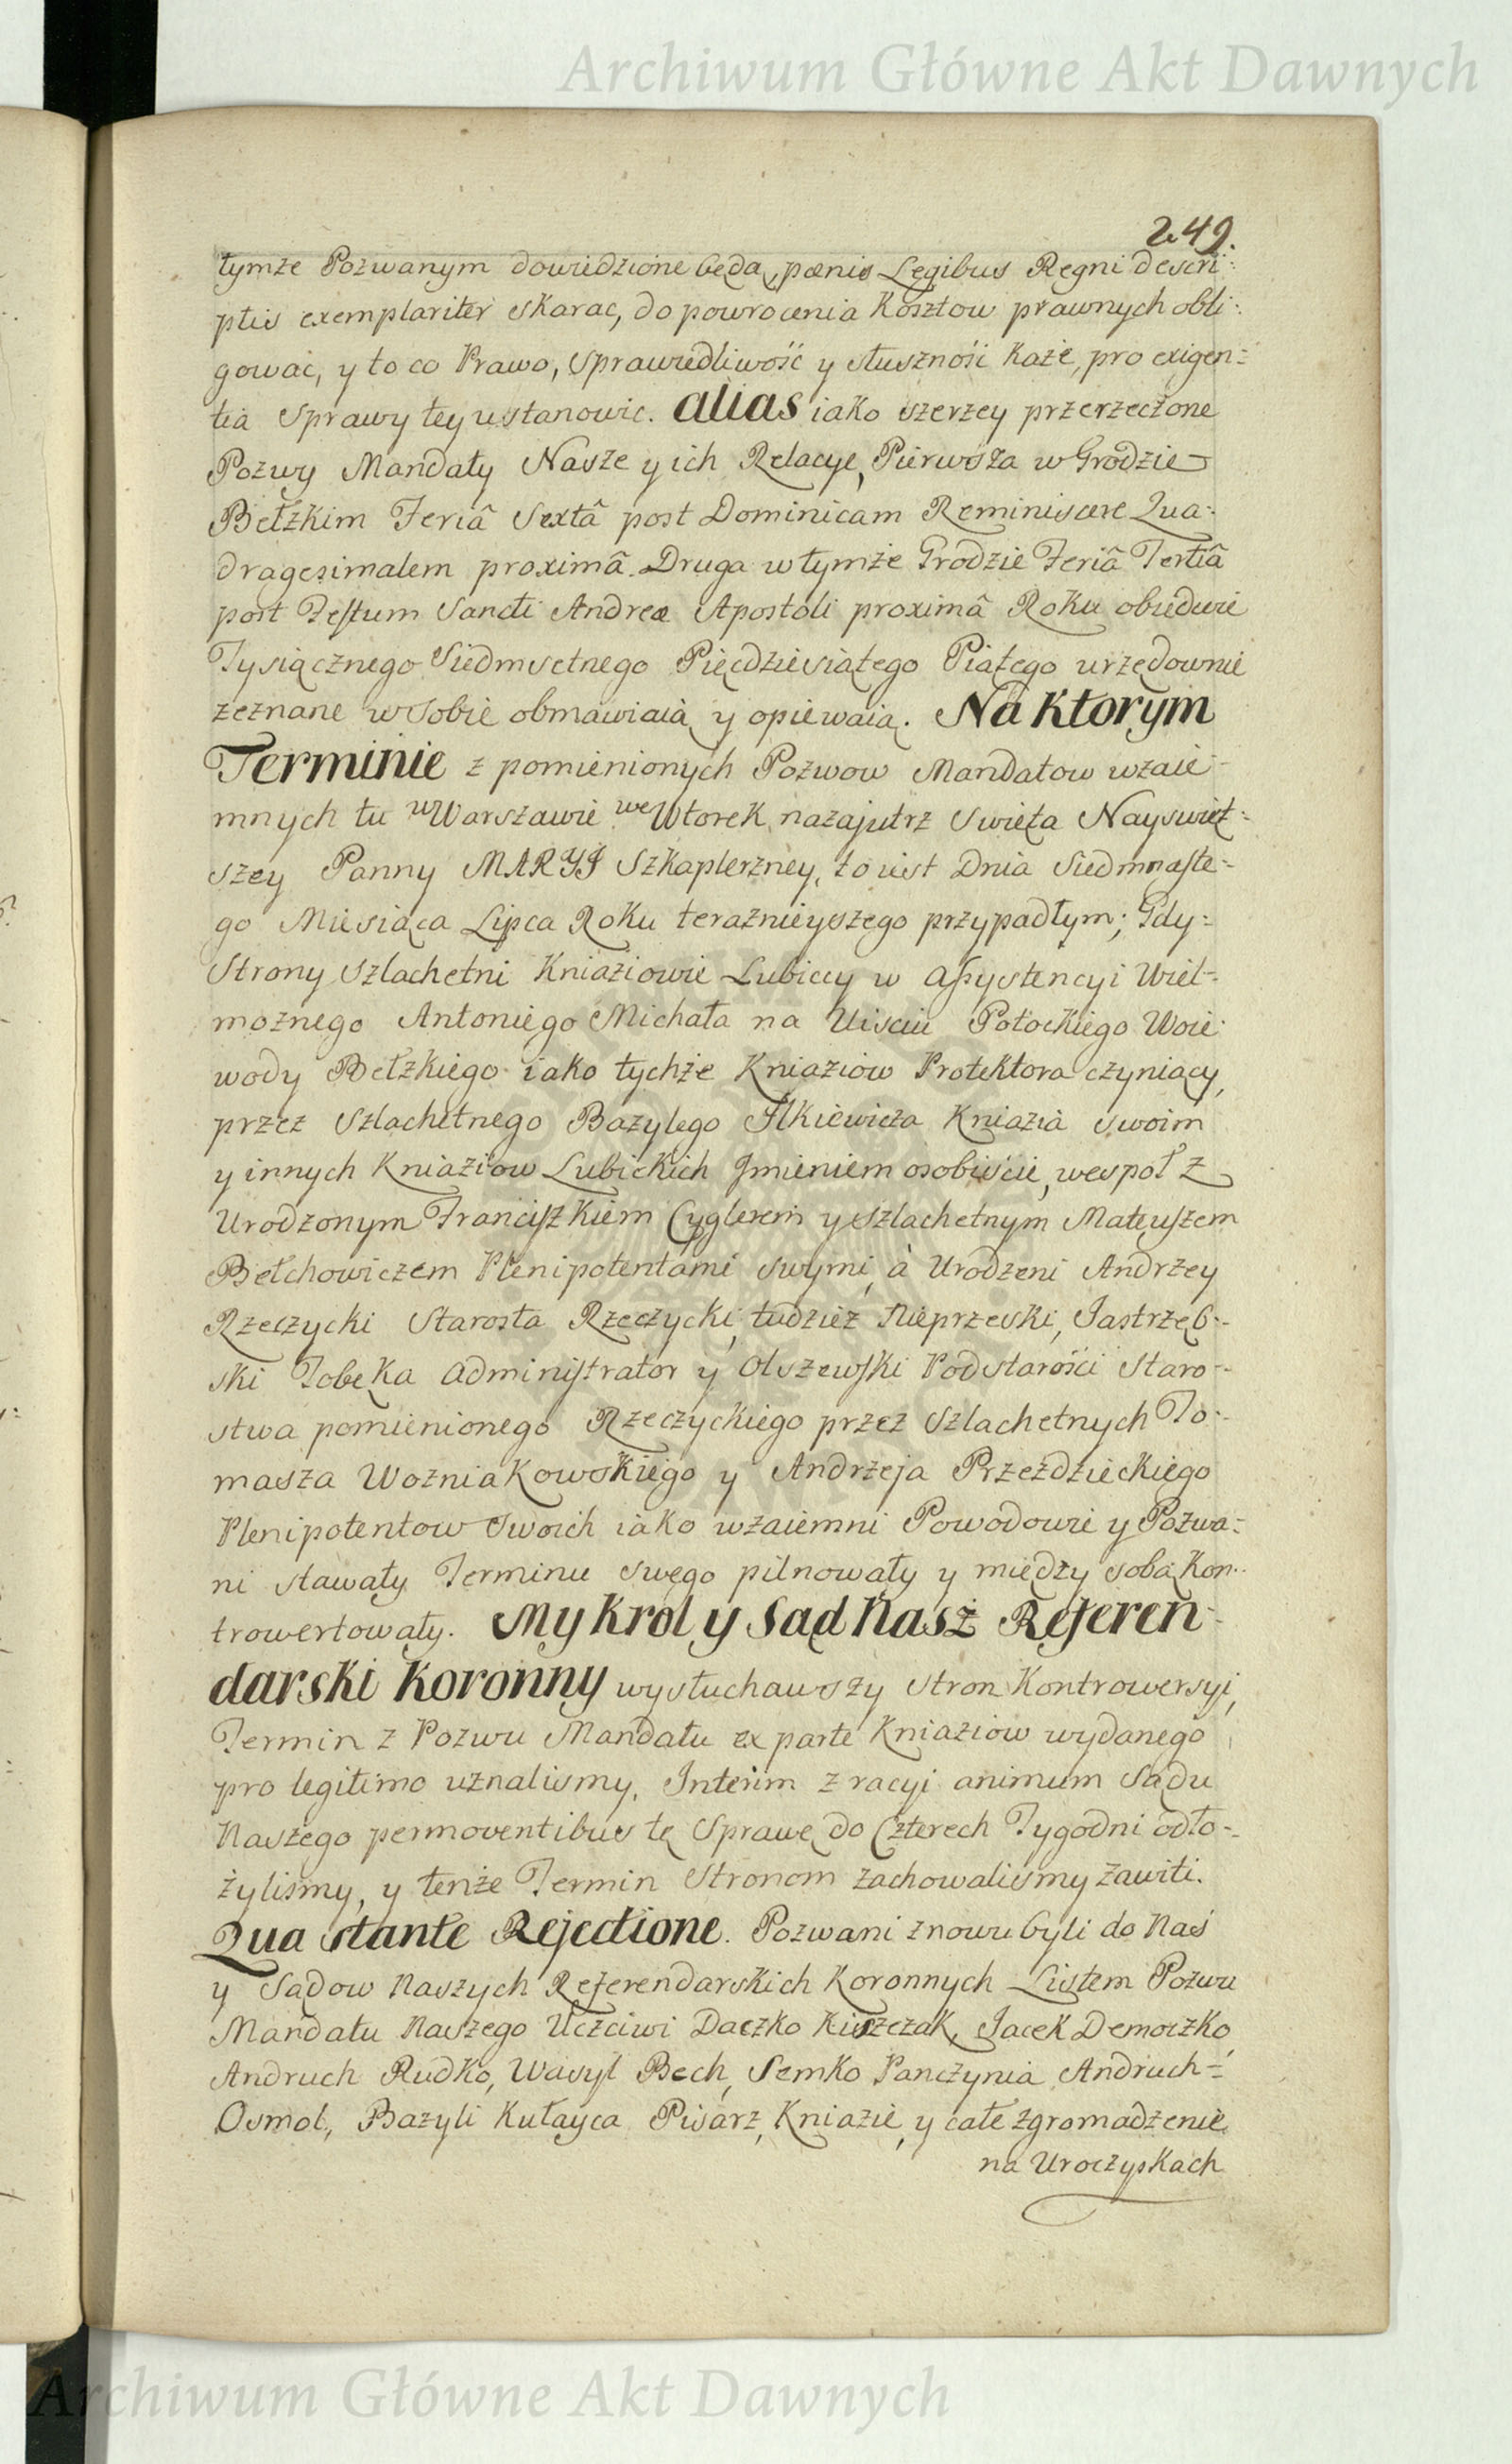 Archiwum Główne Akt Dawnych
249.
tymże Pozwanym dowiedzione będą, pœnis Legibus Regni descri:
ptis exemplariter skarac, do powrocenia Kosztow prawnych obli:
gowac, y to co Prawo, Sprawiedliwość y słuszność każe, pro exigen=
tia Sprawy tey ustanowic. alias iako szerzey przerzeczone
Pozwy Mandaty Nasze y ich Relacye, Pierwsza w Grodzie
Bełzkim Feriâ Sextâ post Dominicam Reminiscere Qua:
dragesimalem proximâ. Druga w tymże Grodzie Feriâ Tertiâ
post Festum Sancti Andreæ Apostoli proximâ Roku obiedwie
Tysiącznego Siedmsetnego Pięcdziesiątego Piątego urzędownie
zeznane w sobie obmawiaią y opiewaią. Na Ktorym
Terminie z pomienionych Pozwow Mandatow wzaie-
mnych tu w Warszawie we Wtorek nazajutrz Swięta Nayswięt:
szey Panny MARYI Szkaplerzney, to iest Dnia Siedmnaste-
go Miesiąca Lipca Roku terażnieyszego przypadłym; Gdy:
Strony Szlachetni Kniaziowie Lubiccy w Assystencyi Wiel-
możnego Antoniego Michała na Uisciu Potockiego Woie:
wody Bełzkiego iako tychże Kniaziow Protektora czyniący,
przez Szlachetnego Bazylego Ilkiewicza Kniazia swoim
y innych Kniaziow Lubickich Imieniem osobiście, wespoł z
Urodzonym Franciszkiem Cyglerem y Szlachetnym Mateuszem
Bełchowiczem Plenipotentami swymi, à Urodzeni Andrzey
Rzeczycki Starosta Rzeczycki, tudzież Nieprzeski, Jastrzęb:-
ski Tobęka Administrator y Olszewski Podstarości Staro-
stwa pomienionego Rzeczyckiego przez Szlachetnych To:-
masza Wozniakowskiego y Andrzeja Przezdzieckiego
Plenipotentow Swoich iako wzaiemni Powodowie y Pozwa:
ni stawały Terminu swego pilnowały y między sobą Kon:
trowertowały. My Krol y Sąd Nasż Referen-
darski Koronny wysłuchawszy Stron Kontrowersyi,
Termin z Pozwu Mandatu ex parte Kniaziow wydanego
pro legitimo uznalismy. Interim z racyi animum Sądu
Naszego permoventibus tę Sprawę do Czterech Tygodni odło-
żylismy, y tenże Termin Stronom zachowalismy zawiti.
Qua stante Rejectione. Pozwani znowu byli do Nas
y Sądow Naszych Referendarskich Koronnych Listem Pozwu
Mandatu Naszego Uczciwi Daczko Kiszczak, Jacek Democzko,
Andruch Rudko, Wasyl Bech, Semko Panczynia, Andruch=
Osmol, Bazyli Kułayca Pisarz, Kniazie, y całe zgromadzenie
na Uroczyskach
Archiwum Główne Akt Dawnych